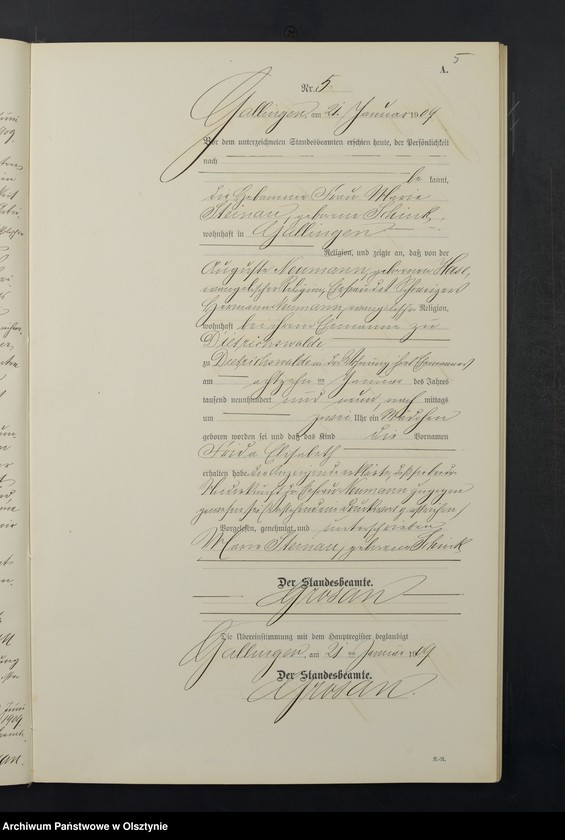 5
A.
Nr. 5.
Gallingen, am 21. Januar 1909
Vor dem unterzeichneten Standesbeamten erschien heute, der Persönlichkeit
nach
be kannt,
die Hebamme Frau Marie
Steinau, geborene Schink,
wohnhaft in Gallingen
Religion, und zeigte an, daß von der
Auguste Neumann, geborenen Hase,
evangelischer Religion, Ehefrau des
Hermann Neumann, evangelischer Religion,
wohnhaft bei ihrem Ehemanne zu
Dietrichswalde
zu Dietrichswalde in der Wohnung ihres Ehemannes
am achtzehn ten Januar des Jahres
tausend neunhundert und neun, nach mittags
um zwei Uhr ein Mädchen
geboren worden sei und daß das Kind die Vornamen
Frida Elisabeth
erhalten habe. die Anzeigende erklärte, daß sie bei der
Niederkunft der Ehefrau Neumann zugegen
gewesen sei.
Vorgelesen, genehmigt und unterschrieben
Marie Steinau, geborene Schink
Der Standesbeamte.
Grosan
Die Übereinstimmung mit dem Hauptregister beglaubigt
Gallingen, am 21 ten Januar 1909
Der Standesbeamte.
Grosan.
Archiwum Państwowe w Olsztynie